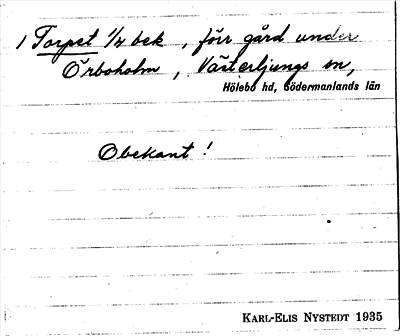 1 Torpet 1/4 bek, förr gård under
Örboholm, Västerljungs sn,
Hölebo hd, Södermanlands län
Obekant!
KARL-ELIS NYSTEDT 1935